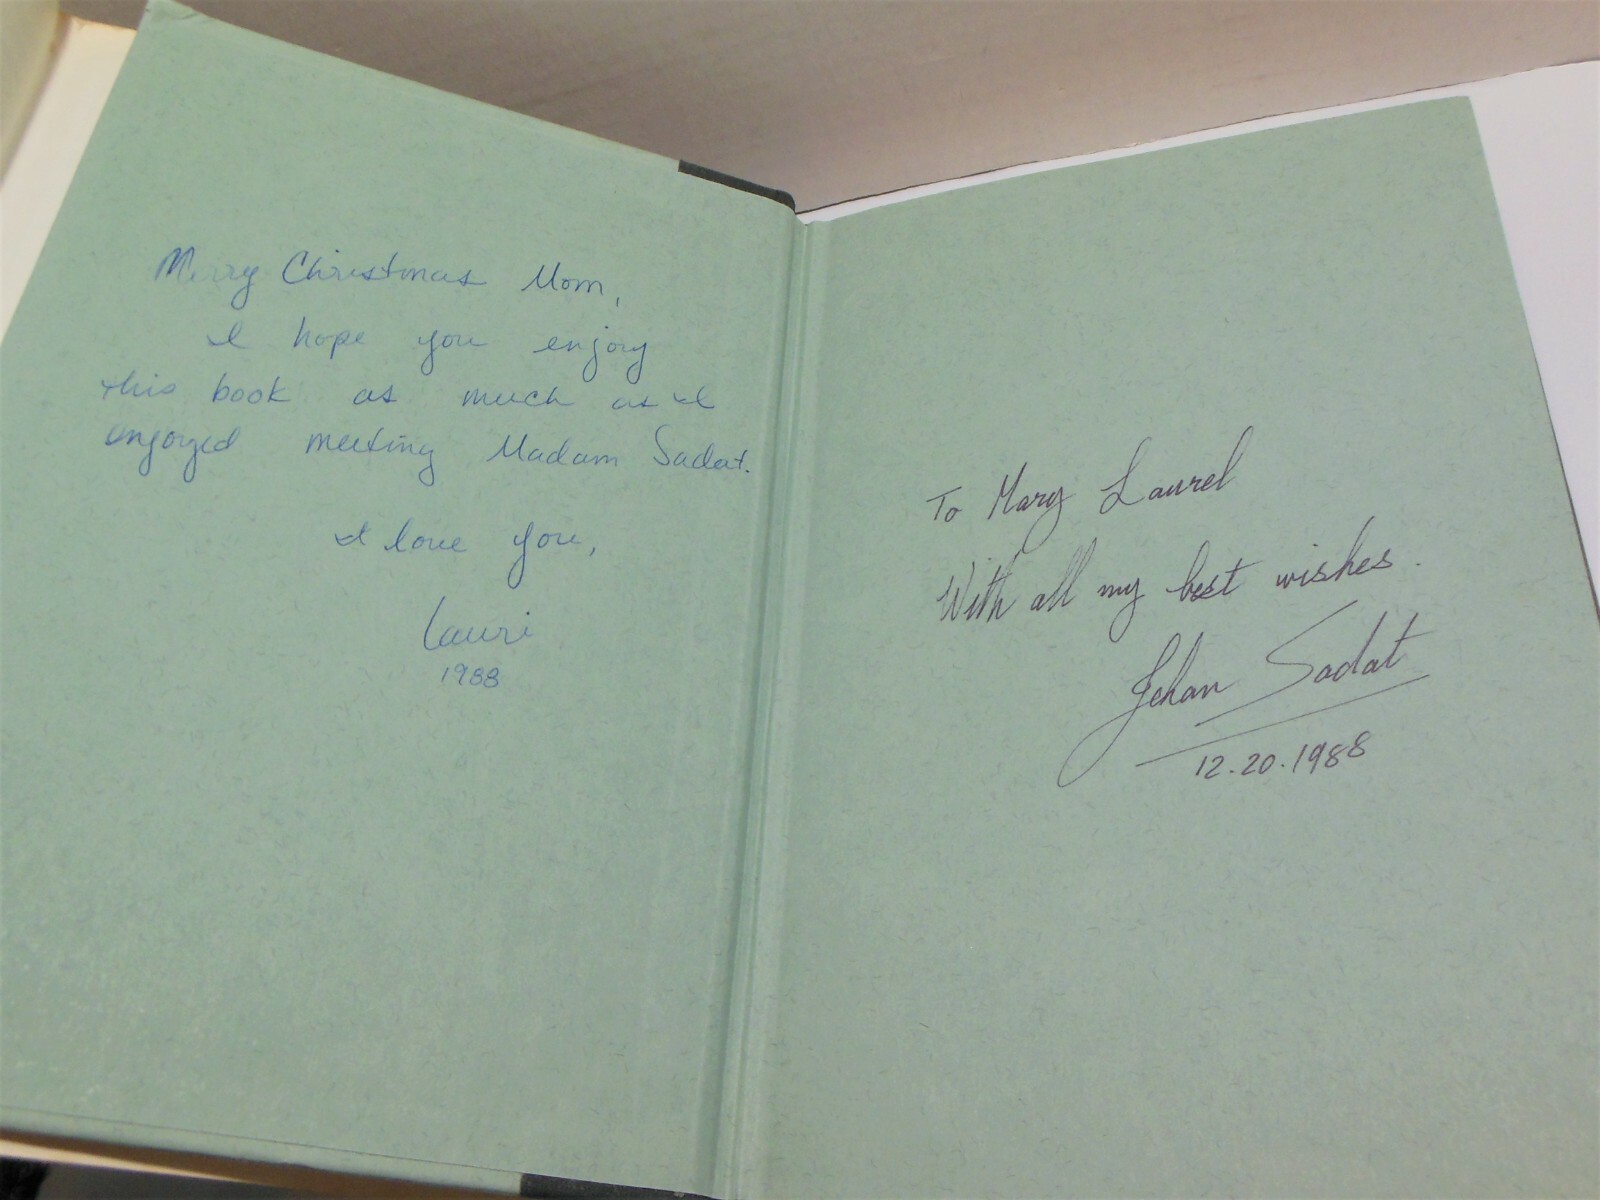 Merry Christmas Mom,
I hope you enjoy
this book as much as I
enjoyed meeting Madam Sadat.
I love you,
Lauri
1988
To Mary Laurel
With all my best wishes.
Jehan Sadat
12.20.1988